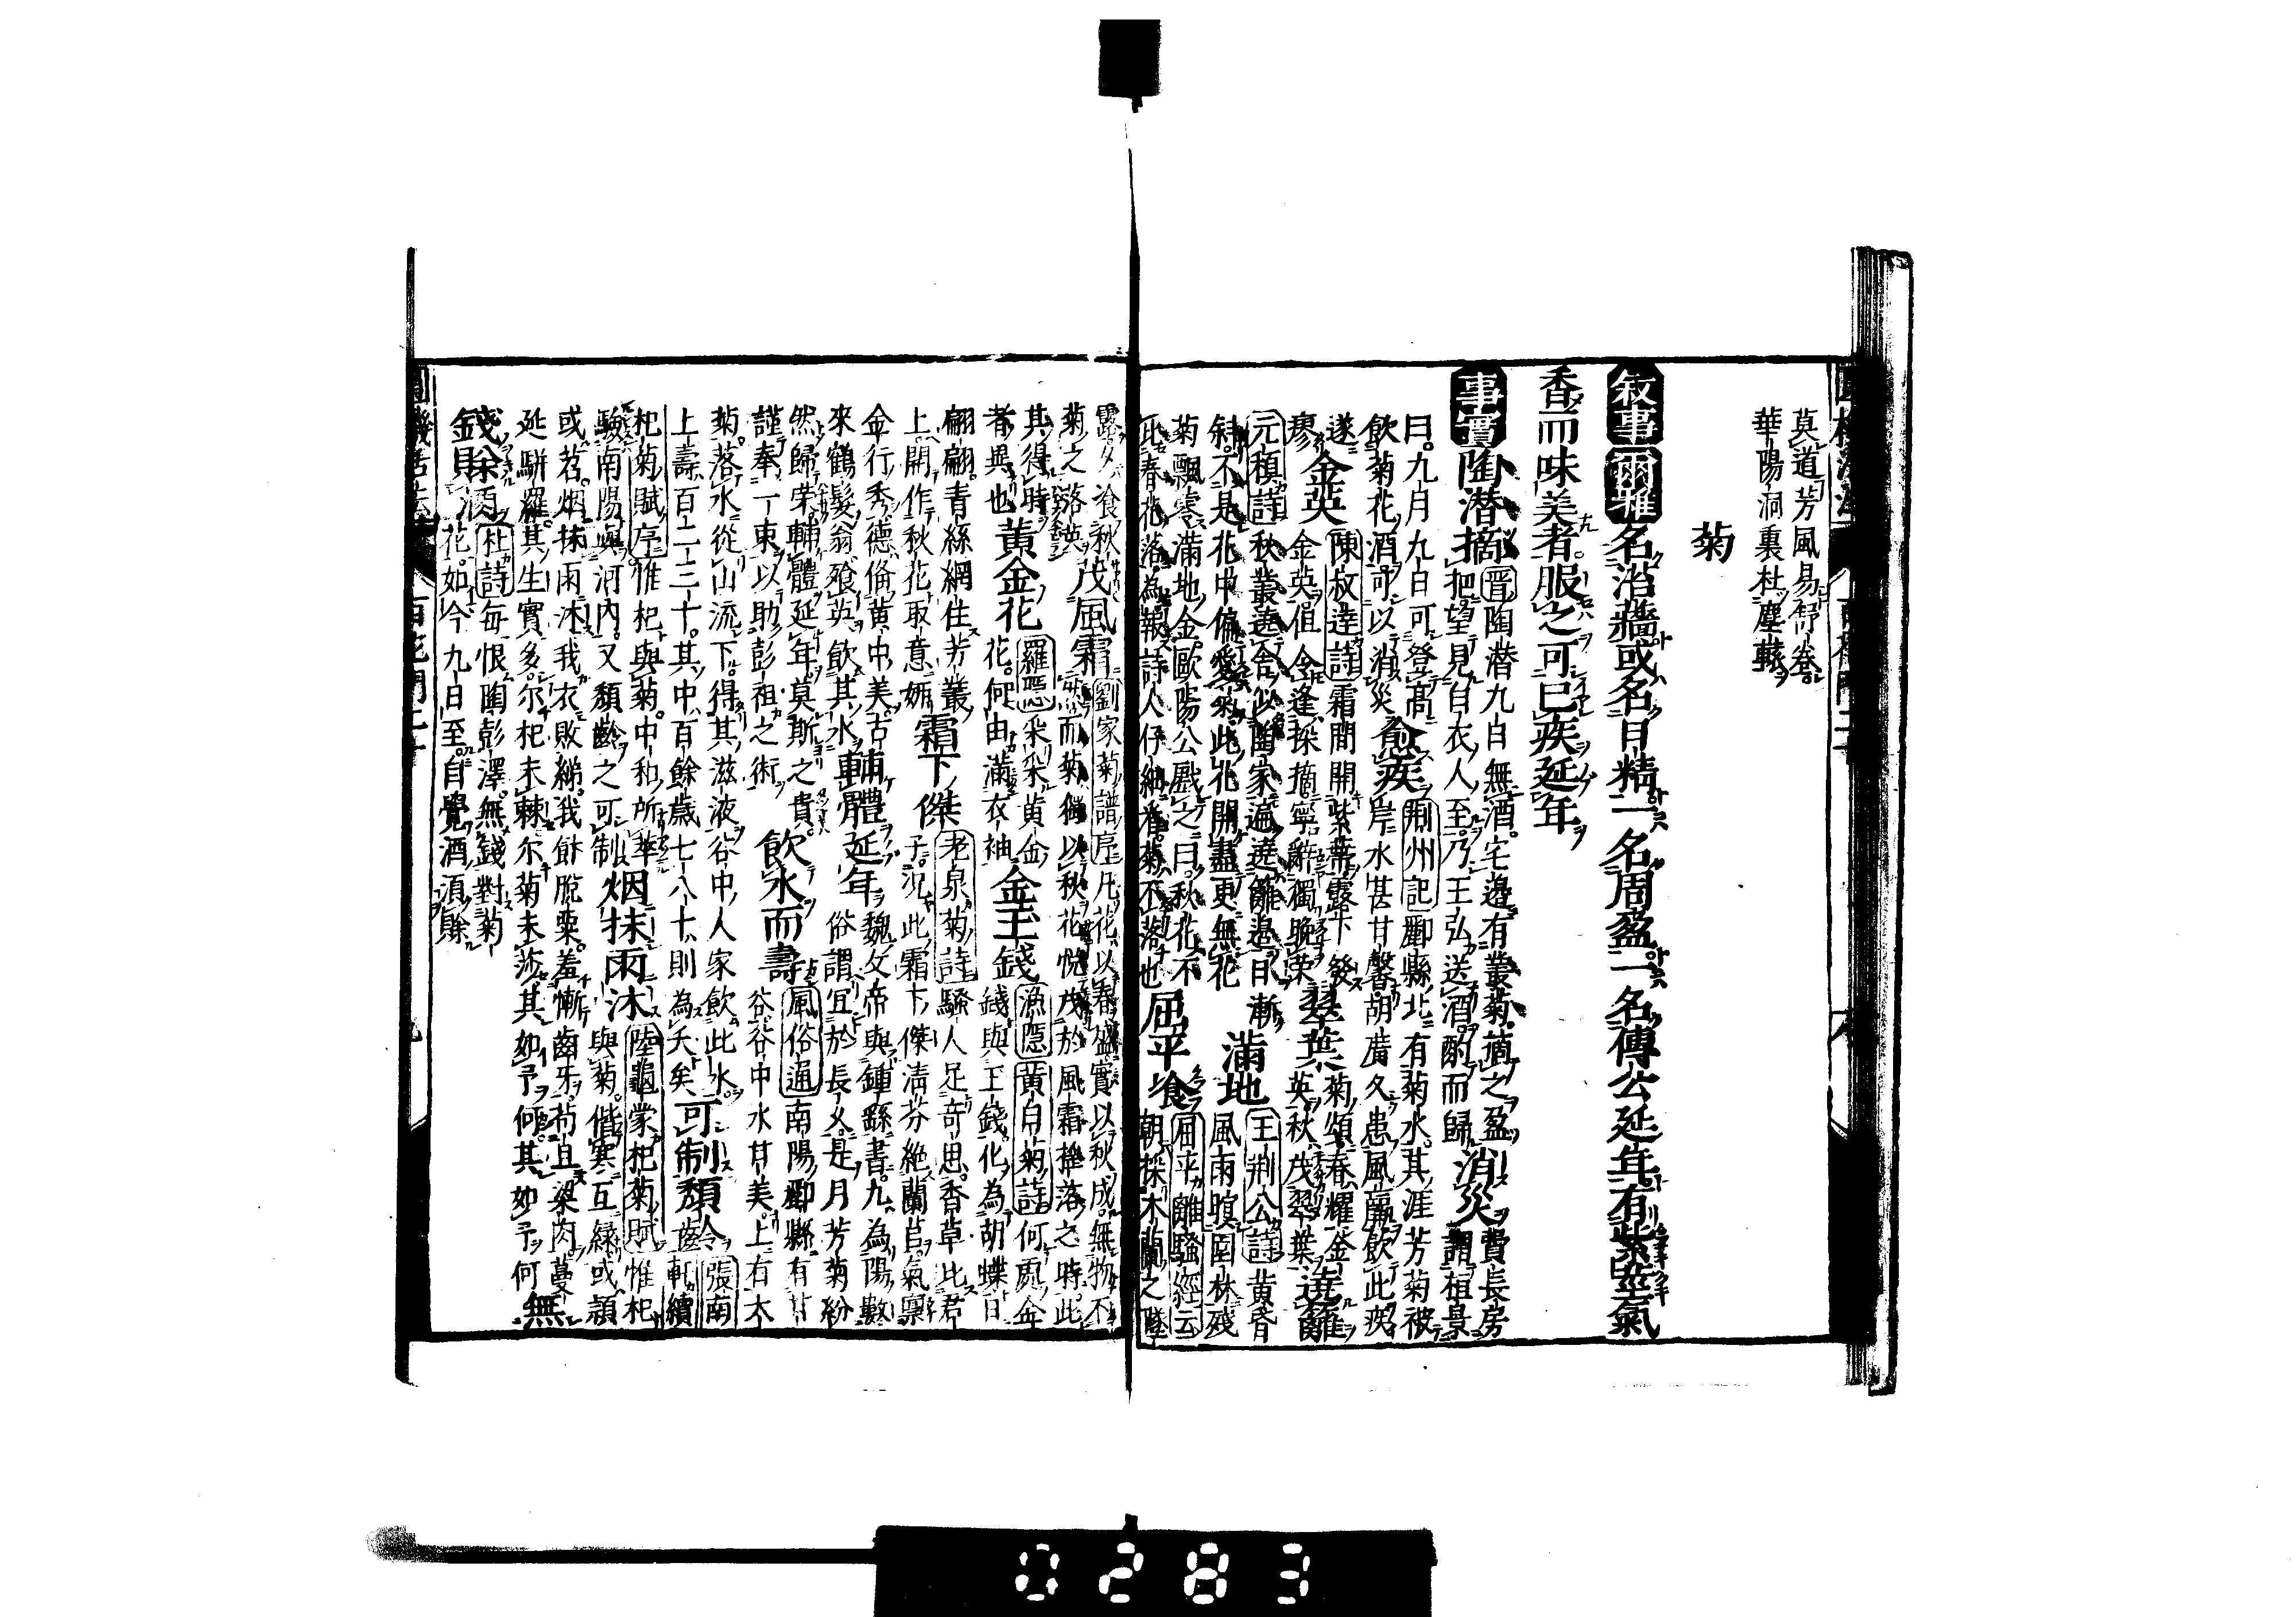 莫道芳風易舒卷
華陽洞裏杜塵轅
菊
敘事 爾雅 名治蘠或名日精一名周盈一名傅公延年有紫莖氣
香而味美者服之可已疾延年
事實 陶潜摘 晋陶潜九日無酒宅邊有叢菊摘之盈
把望見白衣人至乃王弘送酒酌而歸 消災 費長房
謂桓景
曰九月九日可登髙
飲菊花酒可以消災 愈疾 荆州記酈縣北有菊水其涯芳菊被
岸水甚甘馨胡廣久患風羸飲此疾
遂
瘳 金英 陳叔達詩霜間開紫蒂露下發
金英值令逢採摘寧辭獨晚榮 翠葉 菊頌春耀金
英秋茂翠葉 遶籬
元稹詩秋叢遶舍似陶家遍遶籬邉日漸
斜不是花中偏愛菊此花開盡更無花 滿地 王荆公詩黄昏
風雨暝園林殘
菊飄零滿地金歐陽公戲之曰秋花不
比春花落為報詩人仔細看菊不落也 屈平飡 屈平離騷經云
朝採木蘭之墜
露夕飡秋
菊之落英 茂風霜 劉家菊譜序凡花以春盛實以秋成無物不
然而菊獨以秋花悅茂於風霜摧落之時此
其得時
者異也 黄金花 羅隱采采黄金
花何由滿衣袖 金玉錢 漁隱黄白菊詩何處金
錢與玉錢化為胡蝶日
翩翩青絲網住芳叢
上開作秋花取意妍 霜下傑 老泉菊詩騷人足竒思香草比君
子況此霜下傑清芬絶蘭茝氣禀
金行秀德俻黄中美古
來鶴髮翁飡英飲其水 輔體延年 魏文帝與鍾繇書九為陽數
俗謂宜於長久是月芳菊紛
然歸荣輔體延年莫斯之貴
謹奉一束以助彭祖之術 飲水而壽 風俗通南陽酈縣有甘
谷谷中水甘美上有大
菊落水從山流下得其滋液谷中人家飲此水
上壽百二三十其中百餘歳七八十則為夭矣 可制頽令 張南
軒續
杞菊賦序惟杞與菊中和所萃
驗南陽與河内又頽齡之可制 烟抹雨沐 陸龜蒙杞菊賦惟杞
與菊偕寒互緑或頴
或苕烟抹雨沐我衣敗綈我飰脫粟羞慚齒牙苟且粱肉蔓
延駢羅其生實多尔杞未棘尔菊未莎其如予何其如予何 無
錢賖酒 杜詩每恨陶彭澤無錢對菊
花如今九日至自覺酒湏賖